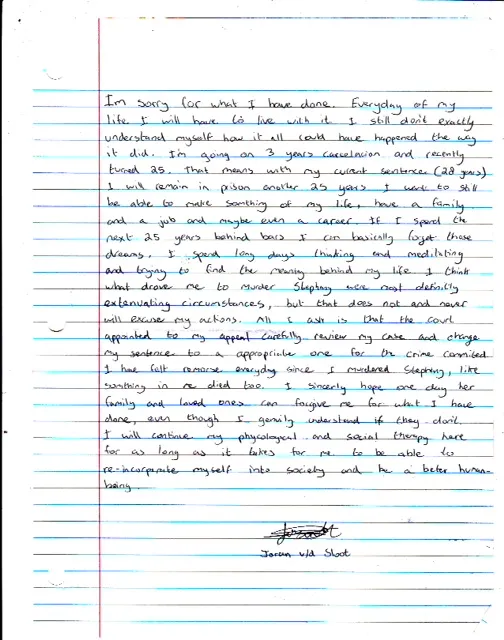 Im sorry for what I have done. Everyday of my
life I will have to live with it. I still don't exactly
understand myself how it all could have happened the way
it did. I'm going on 3 years carcelacion and recently
turned 25. That means with my current sentence (28 years)
I will remain in prison another 25 years. I want to still
be able to make somthing of my life, have a family
and a job and maybe even a career. If I spend the
next 25 years behind bars I can basically forget those
dreams. I spend long days thinking and meditating
and trying to find the meaning behind my life. I think
what drove me to murder Stephany were most definitly
extenuating circumstances, but that does not and never
will excuse my actions. All I ask is that the court
appointed to my appeal carefully review my case and change
my sentence to a appropriate one for the crime commited.
I have felt remorse everyday since I murdered Stephany, like
somthing in me died too. I sincerly hope one day her
family and loved ones can forgive me for what I have
done, even though I genuily understand if they don't.
I will continue my phycological and social therapy here
for as long as it takes for me to be able to
re-incorperate myself into society and be a beter human-
being.
Joran v/d Sloot